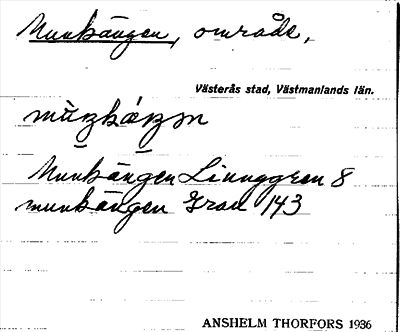 Munkängen, område,
Västerås stad, Västmanlands län.
Munkängen Linnggren 8
munkängen Grau 143
ANSHELM THORFORS 1936